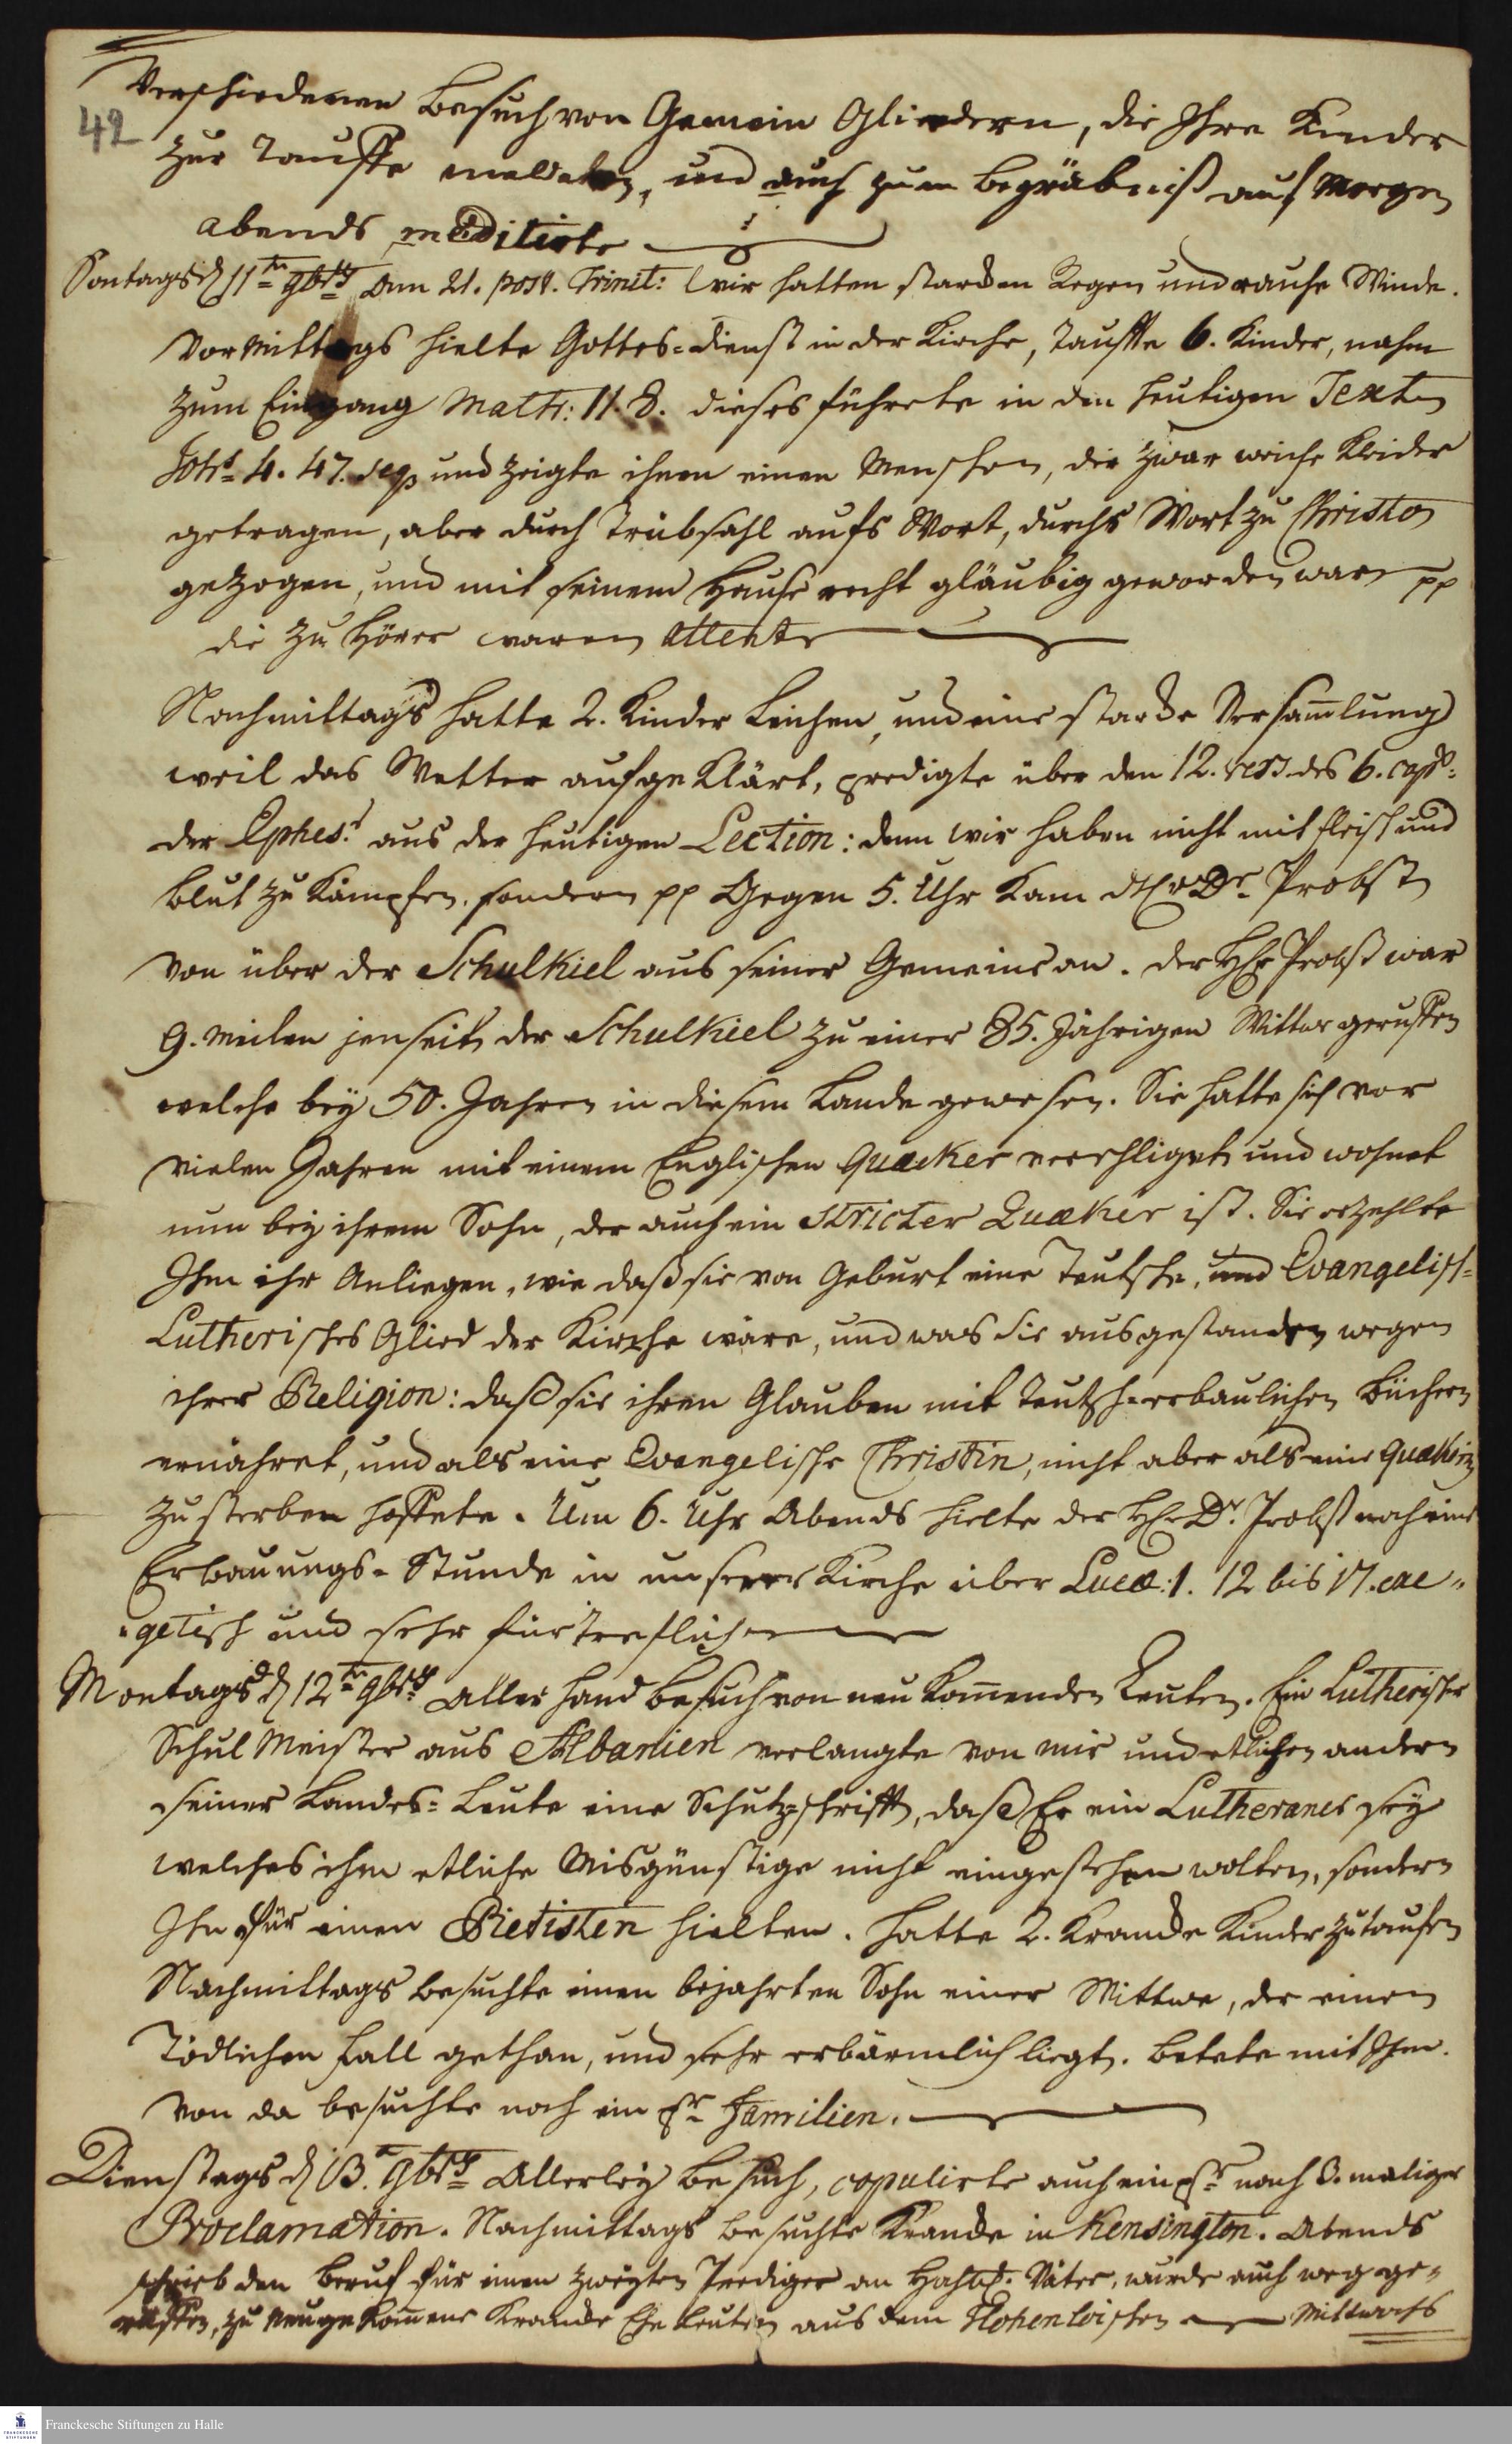 42
Verschiedenen Besuch von Gemein Gliedern, die Ihre Kinder
zur Tauffe meldeten, und auch zum Begräbniß auf Morgen
abends meditirte
Sontags d 11ten 9brs Dom 21. post. Trinit: Wir hatten starcken Regen und rauhe Winde.
Vormittags hielte Gottes-dienst in der Kirche, tauffte 6. Kinder, nahm
zum Eingang Matth: 11. 8. dieses führete in den heutigen Text
Joh: 4. 47. seq und zeigte ihnen einen Menschen, der zwar weiche Kleider
getragen, aber durch Trübsahl aufs Wort, durchs Wort zu Christo
gezogen, und mit seinem Hause recht gläubig geworden war pp
die Zuhörer waren attent
Nachmittags hatte 2. Kinder Leichen, und eine starcke Versam̄lung
weil das Wetter aufgeklärt, predigte über den 12. vers. des 6. cap:
der Ephes: aus der heutigen Lection: denn wir haben nicht mit Fleisch und
Blut zu kämpfen, sondern pp Gegen 5. Uhr kam der Hr Dr Probst
von über der Schulkiel aus seiner Gemeine an. Der Hr Probst war
9. Meilen jenseit der Schulkiel zu einer 85. Jährigen Witwe geruffen
welche bey 50. Jahren in diesem Lande gewesen. Sie hatte sich vor
vielen Jahren mit einem Englischen Quaeker verehliget und wohnet
nun bey ihrem Sohn, der auch ein stricter Quaeker ist. Sie erzehlte
Ihm ihr Anliegen, wie daß sie von Geburt eine Teutsche, und Evangelisch-
Lutherisches Glied der Kirche wäre, und was sie ausgestanden wegen
ihrer Religion: daß sie ihren Glauben mit Teutsch-erbaulichen Büchern
ernähret, und als eine Evangelische Christin, nicht aber als eine Quakerin
zu sterben hoffete. Um 6. Uhr Abends hielte der Hr Dr. Probst noch eine
Erbauungs-Stunde in unserer Kirche über Lucae: 1. 12 bis 17. exe-
-getisch und sehr fürtreflich
Montags d 12ten 9brs Aller hand Besuch von neu kom̄enden Leuten. Ein Lutherischer
Schul Meister aus Albanien verlangte von mir und etlichen andern
seiner Landes-Leute eine Schutz-schrifft, daß Er ein Lutheraner sey
welches ihm etliche Misgünstige nicht eingestehen wolten, sondern
Ihn für einen Pietisten hielten. Hatte 2. krancke Kinder zu taufen
Nachmittags besuchte einen bejahrten Sohn einer Wittwe, der einen
Tödlichen Fall gethan, und sehr erbärmlich liegt. Betete mit Ihm.
Von da besuchte noch ein pr Familien.
Dienstags d 13. 9brs Allerley Besuch, copulirte auch ein pr nach 3. maliger
Proclamation. Nachmittags besuchte Krancke in Kensington. Abends
schrieb den Beruf für einen zweyten Prediger an Väter, wurde auch weg ge-
ruffen, zu neugekom̄ene krancke Ehe Leuten aus dem Hohenloischen Mittwochs
Franckesche Stiftungen zu Halle